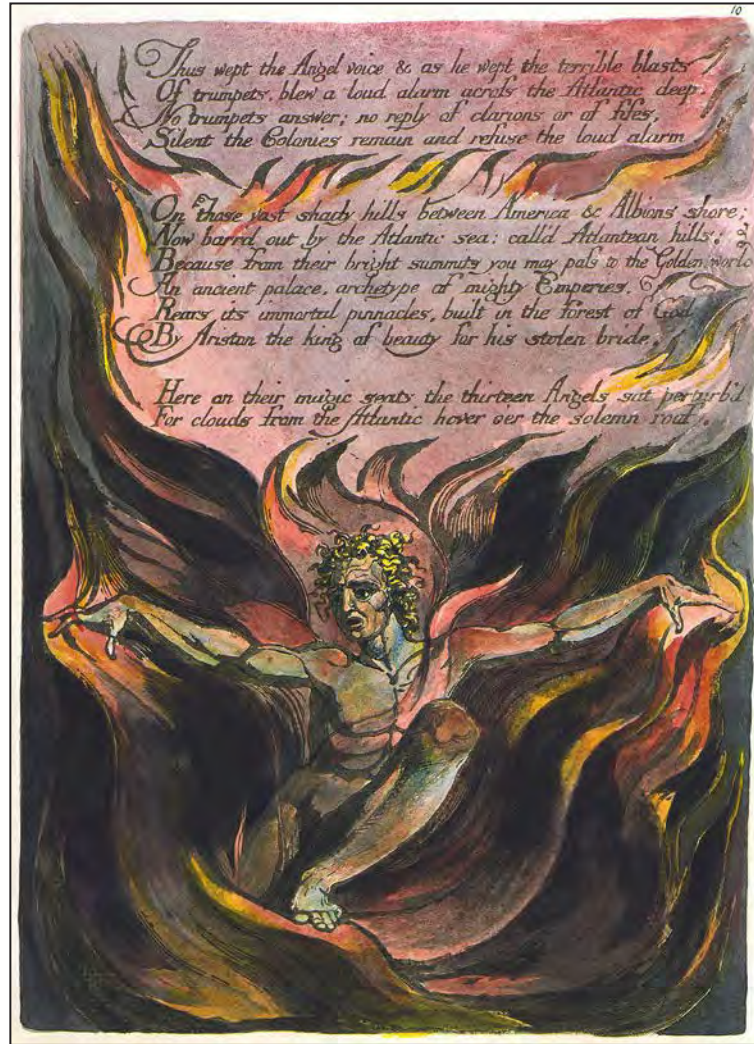 10
Thus wept the Angel voice & as he wept the terrible blasts
Of trumpets, blew a loud alarm across the Atlantic deep.
No trumpets answer; no reply of clarions or of fifes,
Silent the Colonies remain and refuse the loud alarm
On those vast shady hills between America & Albions shore;
Now barrd out by the Atlantic sea: calld Atlantean hills:
Because from their bright summits you may pass to the Golden world
An ancient palace, archetype of mighty Emperies,
Rears its immortal pinnacles, built in the forest of God
By Ariston the king of beauty for his stolen bride,
Here on their magic seats the thirteen Angels sat perturb'd
For clouds from the Atlantic hover o'er the solemn roof.